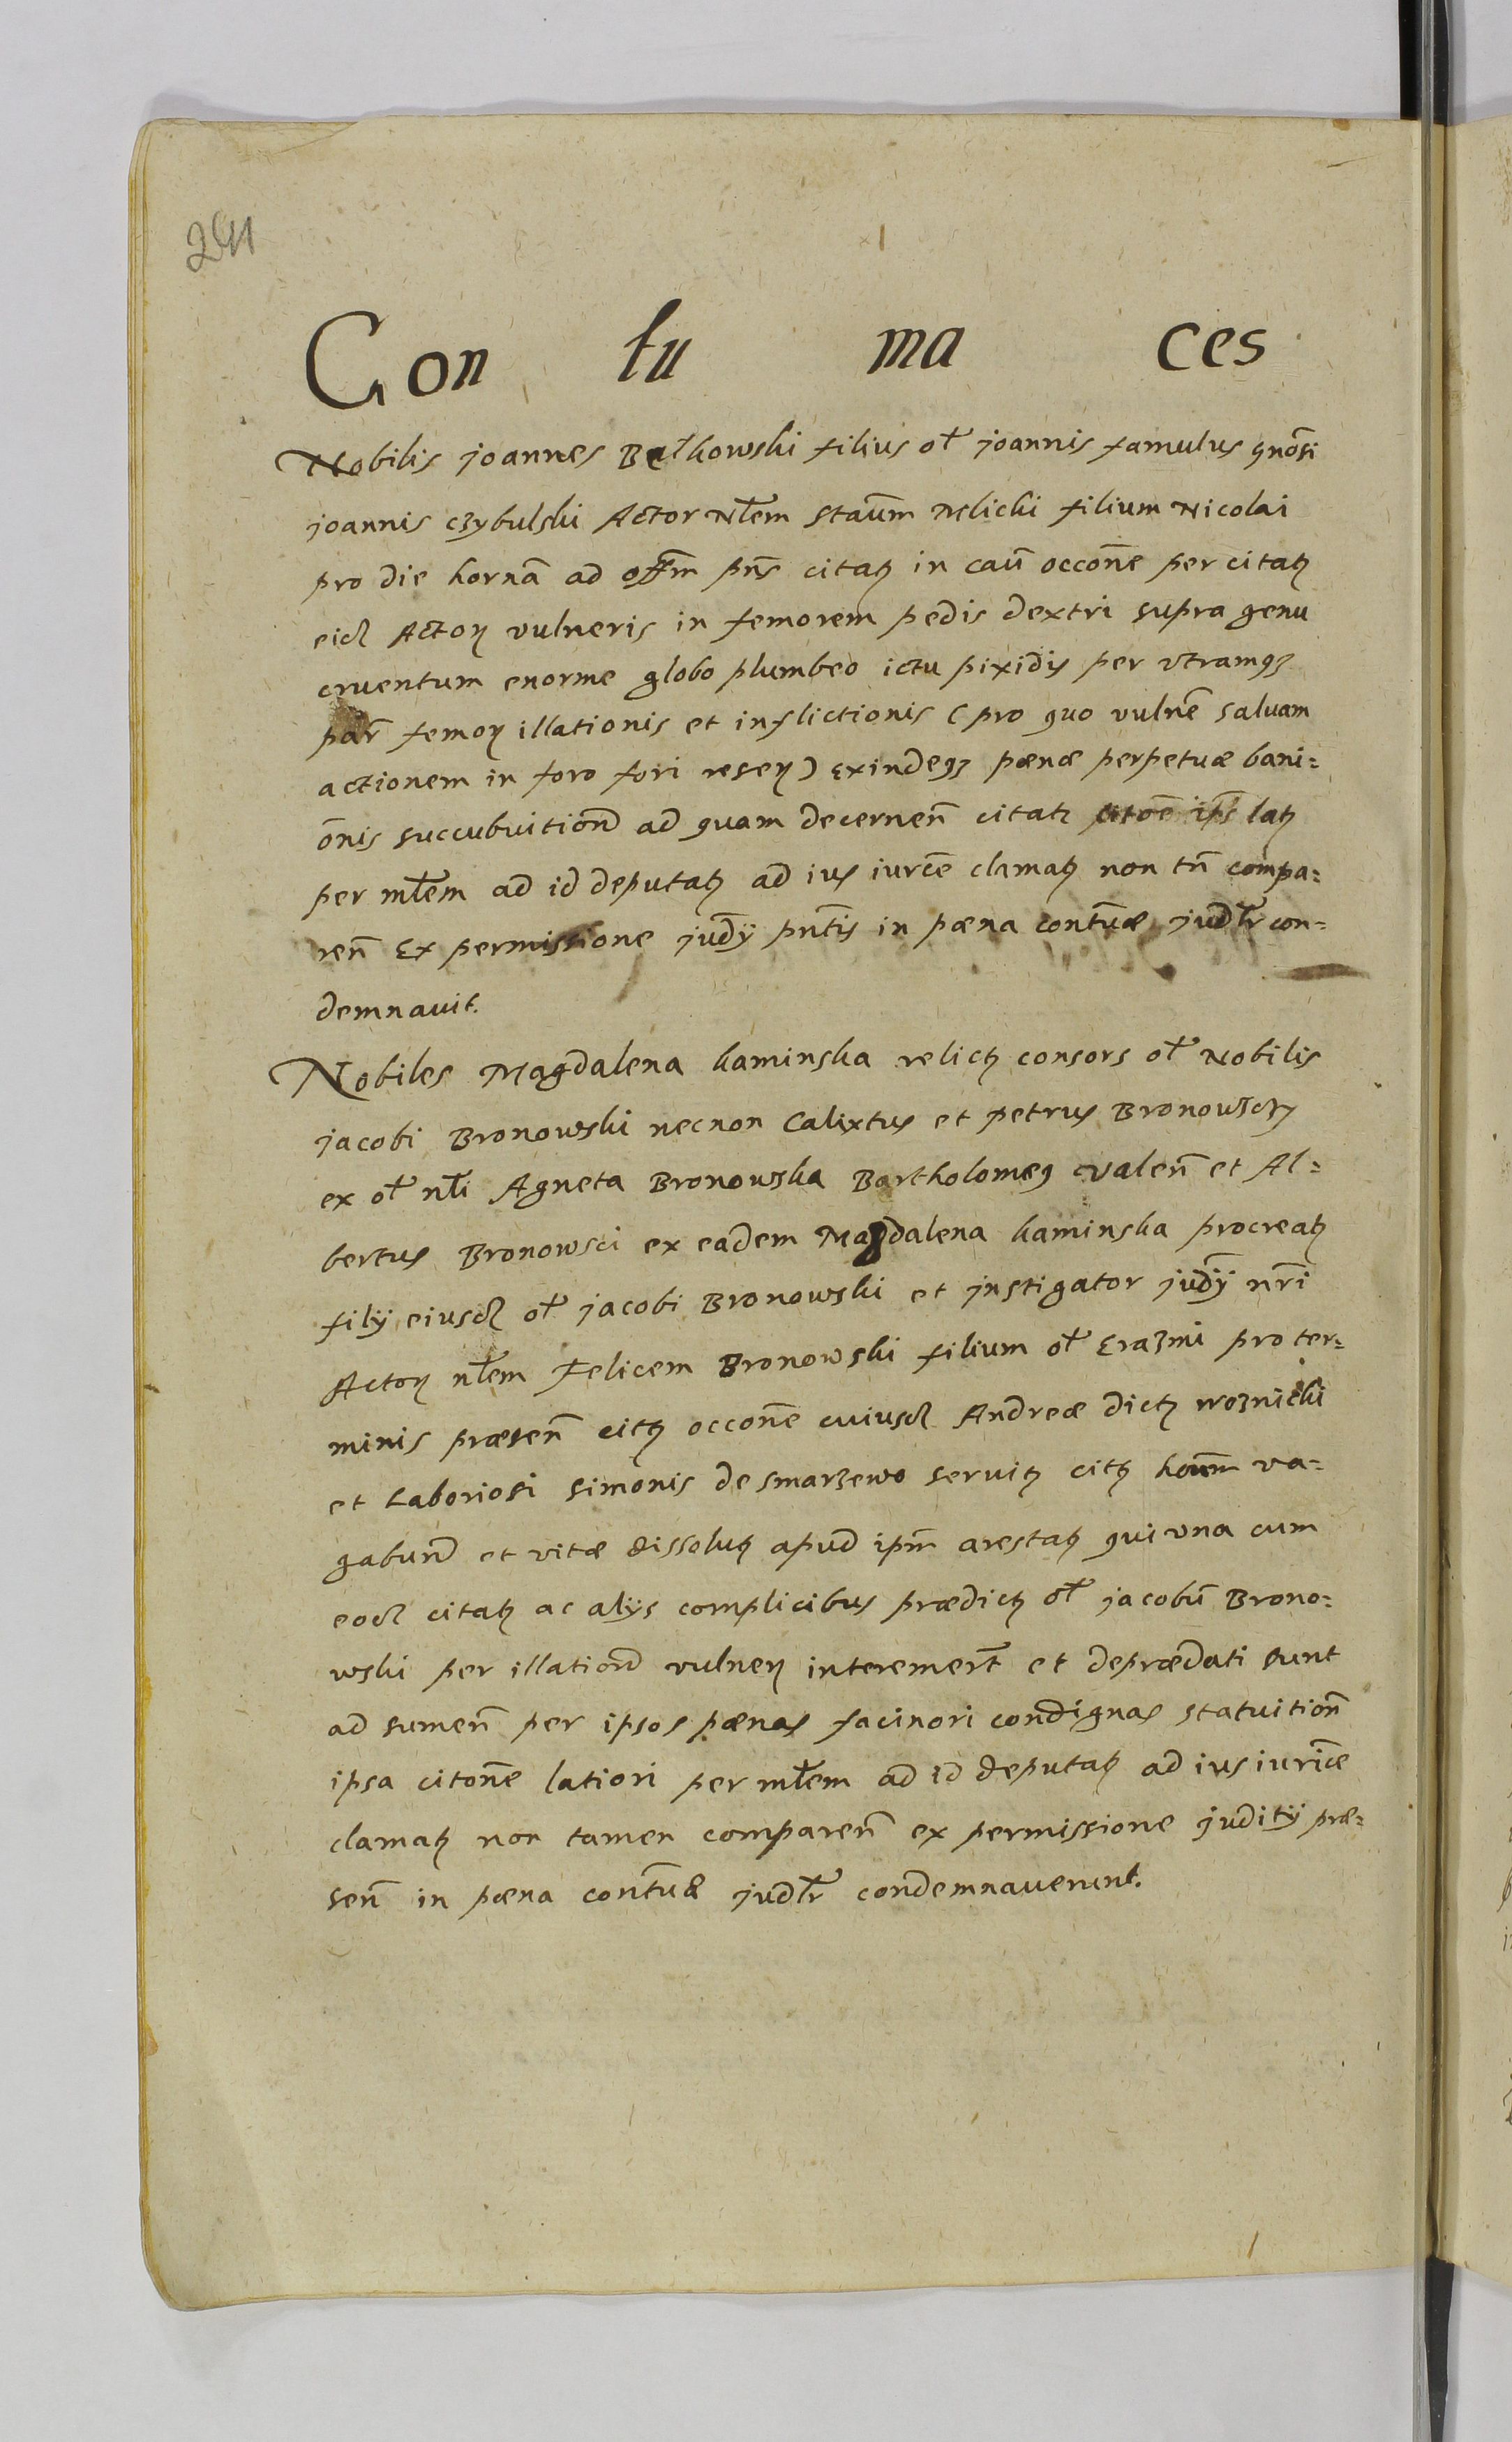 241
Con tu ma ces
Nobilis joannes Bałkowski filius ol̃ joannis famulus gnõsi
joannis czybulski Actor Nl̃em Staũm Milicki filium Nicolai
pro die hornã ad off̃m pñs citatꝫ in caũ occõne per citatꝫ
eidꝫ Actoꝝ vulneris in femorem pedis dextri supra genu
cruentum enorme globo plumbeo ictu pixidis per vtramqꝫ
par̃ femoꝝ illationis et inflictionis (pro quo vulnẽ saluam
actionem in foro fori reseꝝ) Exindeqꝫ pœnæ perpetuæ bani=
õnis succubuitioñ ad quam decerneñ citatꝫ citõe ip̃s latꝫ
per ml̃em ad id deputatꝫ ad ius iurce clamatꝫ non tñ compa=
reñ Ex permissione judỹ pñtis in pæna contũæ judl̃r con=
demnauit.
Nobiles Magdalena kaminska relictꝫ consors ol̃ Nobilis
jacobi Bronowski necnon Calixtus et petrus Bronowscÿ
ex ol̃ nl̃i Agneta Bronowska Bartholomeꝰ valeñ et Al=
bertus Bronowsci ex eadem Magdalena kaminska procreatꝫ
filÿ eiusdꝫ ol̃ jacobi Bronowski et jnstigator judỹ nr̃i
Actoꝝ nl̃em Felicem Bronowski filium ol̃ Erazmi pro ter=
minis præseñ citꝫ occõne cuiusdꝫ Andreæ dictꝫ woznicki
et Laboriosi Simonis de smarzewo seruitꝫ citꝫ hoũm va=
gabuñ et vitæ dissolutꝫ apud ip̃m arestatꝫ qui vna cum
eodꝫ citatꝫ ac alÿs complicibus prædictꝫ ol̃ jacobũ Brono=
wski per illatioñ vulneꝝ interemer̃t et deprædati sunt
ad sumeñ per ipsos pænas facinori condignas statuitioñ
ipsa citõne latiori per ml̃em ad id deputatꝫ ad ius iurĩce
clamatꝫ non tamen compareñ ex permissione juditÿ præ=
señ in pæna contũæ judl̃r condemnauerunt.